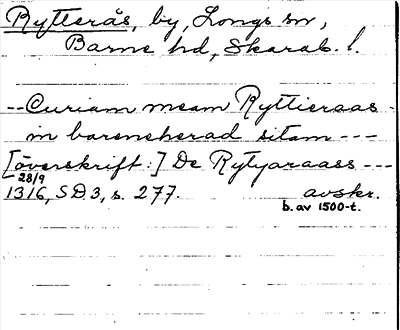 Rytterås, by, Longs sn,
Barne hd, Skarab. l.
-- Curiam meam Ryttieraas -
in barencherad sitam ---
[överskrift:] De Rytyaraass ---
28/9
1316, SD3, s. 277. avskr.
b. av 1500-t.